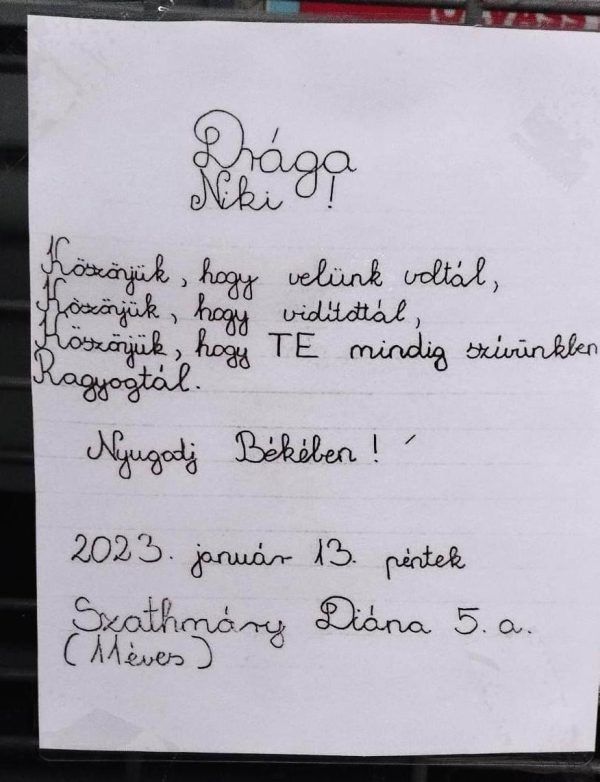 Drága
Niki !
Köszönjük, hogy velünk voltál,
Köszönjük, hogy vidítottál,
Köszönjük, hogy TE mindig szívünkben
Ragyogtál.
Nyugodj Békében !
2023. január 13. péntek
Szathmáry Diána 5. a.
(11éves)